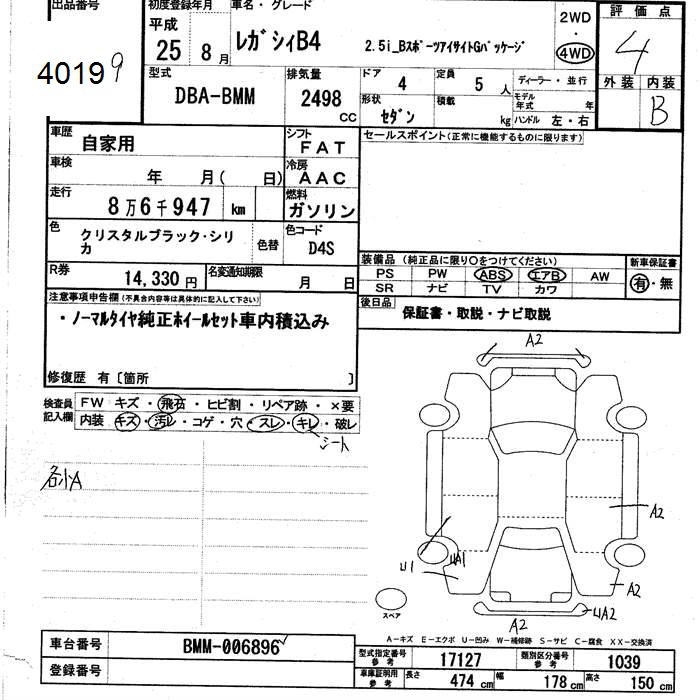 出品番号 初度登録年月 車名・グレード 2WD 評価点
40199 平成 25 8月 レガシィB4 2.5i_BスポーツアイサイトGパッケージ ・ 4WD 4
型式 DBA-BMM 排気量 2498 CC ドア 4 定員 5人 ディーラー・並行 外装 内装
形状 セダン 積載 kg モデル年式 年 ハンドル 左・右 B
車歴 自家用 シフト FAT セールスポイント(正常に機能するものに限ります)
車検 年 月( 日) 冷房 AAC
走行 8万6千947 km 燃料 ガソリン
色 クリスタルブラック・シリカ 色替 色コード D4S
装備品(純正品に限り○をつけてください) 新車保証書
PS PW ABS エアB AW 有・無
SR ナビ TV カワ
R券 14,330円 名変通知期限 月 日
後日品 保証書・取説・ナビ取説
注意事項申告欄(不具合内容等は具体的に記入して下さい)
・ノーマルタイヤ純正ホイールセット車内積込み
修復歴 有〔箇所 〕
検査員記入欄 FW キズ・飛石・ヒビ割・リペア跡・×要
内装 キズ・汚レ・コゲ・穴・スレ・キレ・破レ
シート
各小A
A2
A2
U1 UA1
A2
UA2
A2
スペア
A-キズ E-エクボ U-凹み W-補修跡 S-サビ C-腐食 XX-交換済
車台番号 BMM-006896
登録番号
型式指定番号 参考 17127 類別区分番号 参考 1039
車庫証明用 参考 長さ 474cm 幅 178cm 高さ 150cm